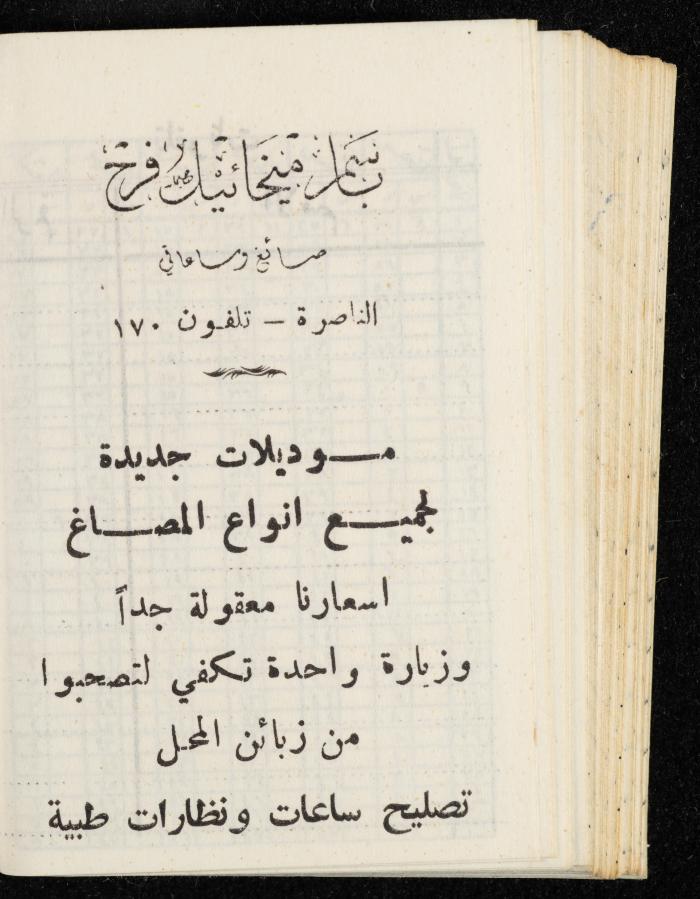 باسم ميخائيل فرح
صائغ وساعاتي
الناصرة – تلفون ١٧٠
موديلات جديدة
لجميع انواع المصاغ
اسعارنا معقولة جداً
وزيارة واحدة تكفي لتصحبوا
من زبائن المحل
تصليح ساعات ونظارات طبية